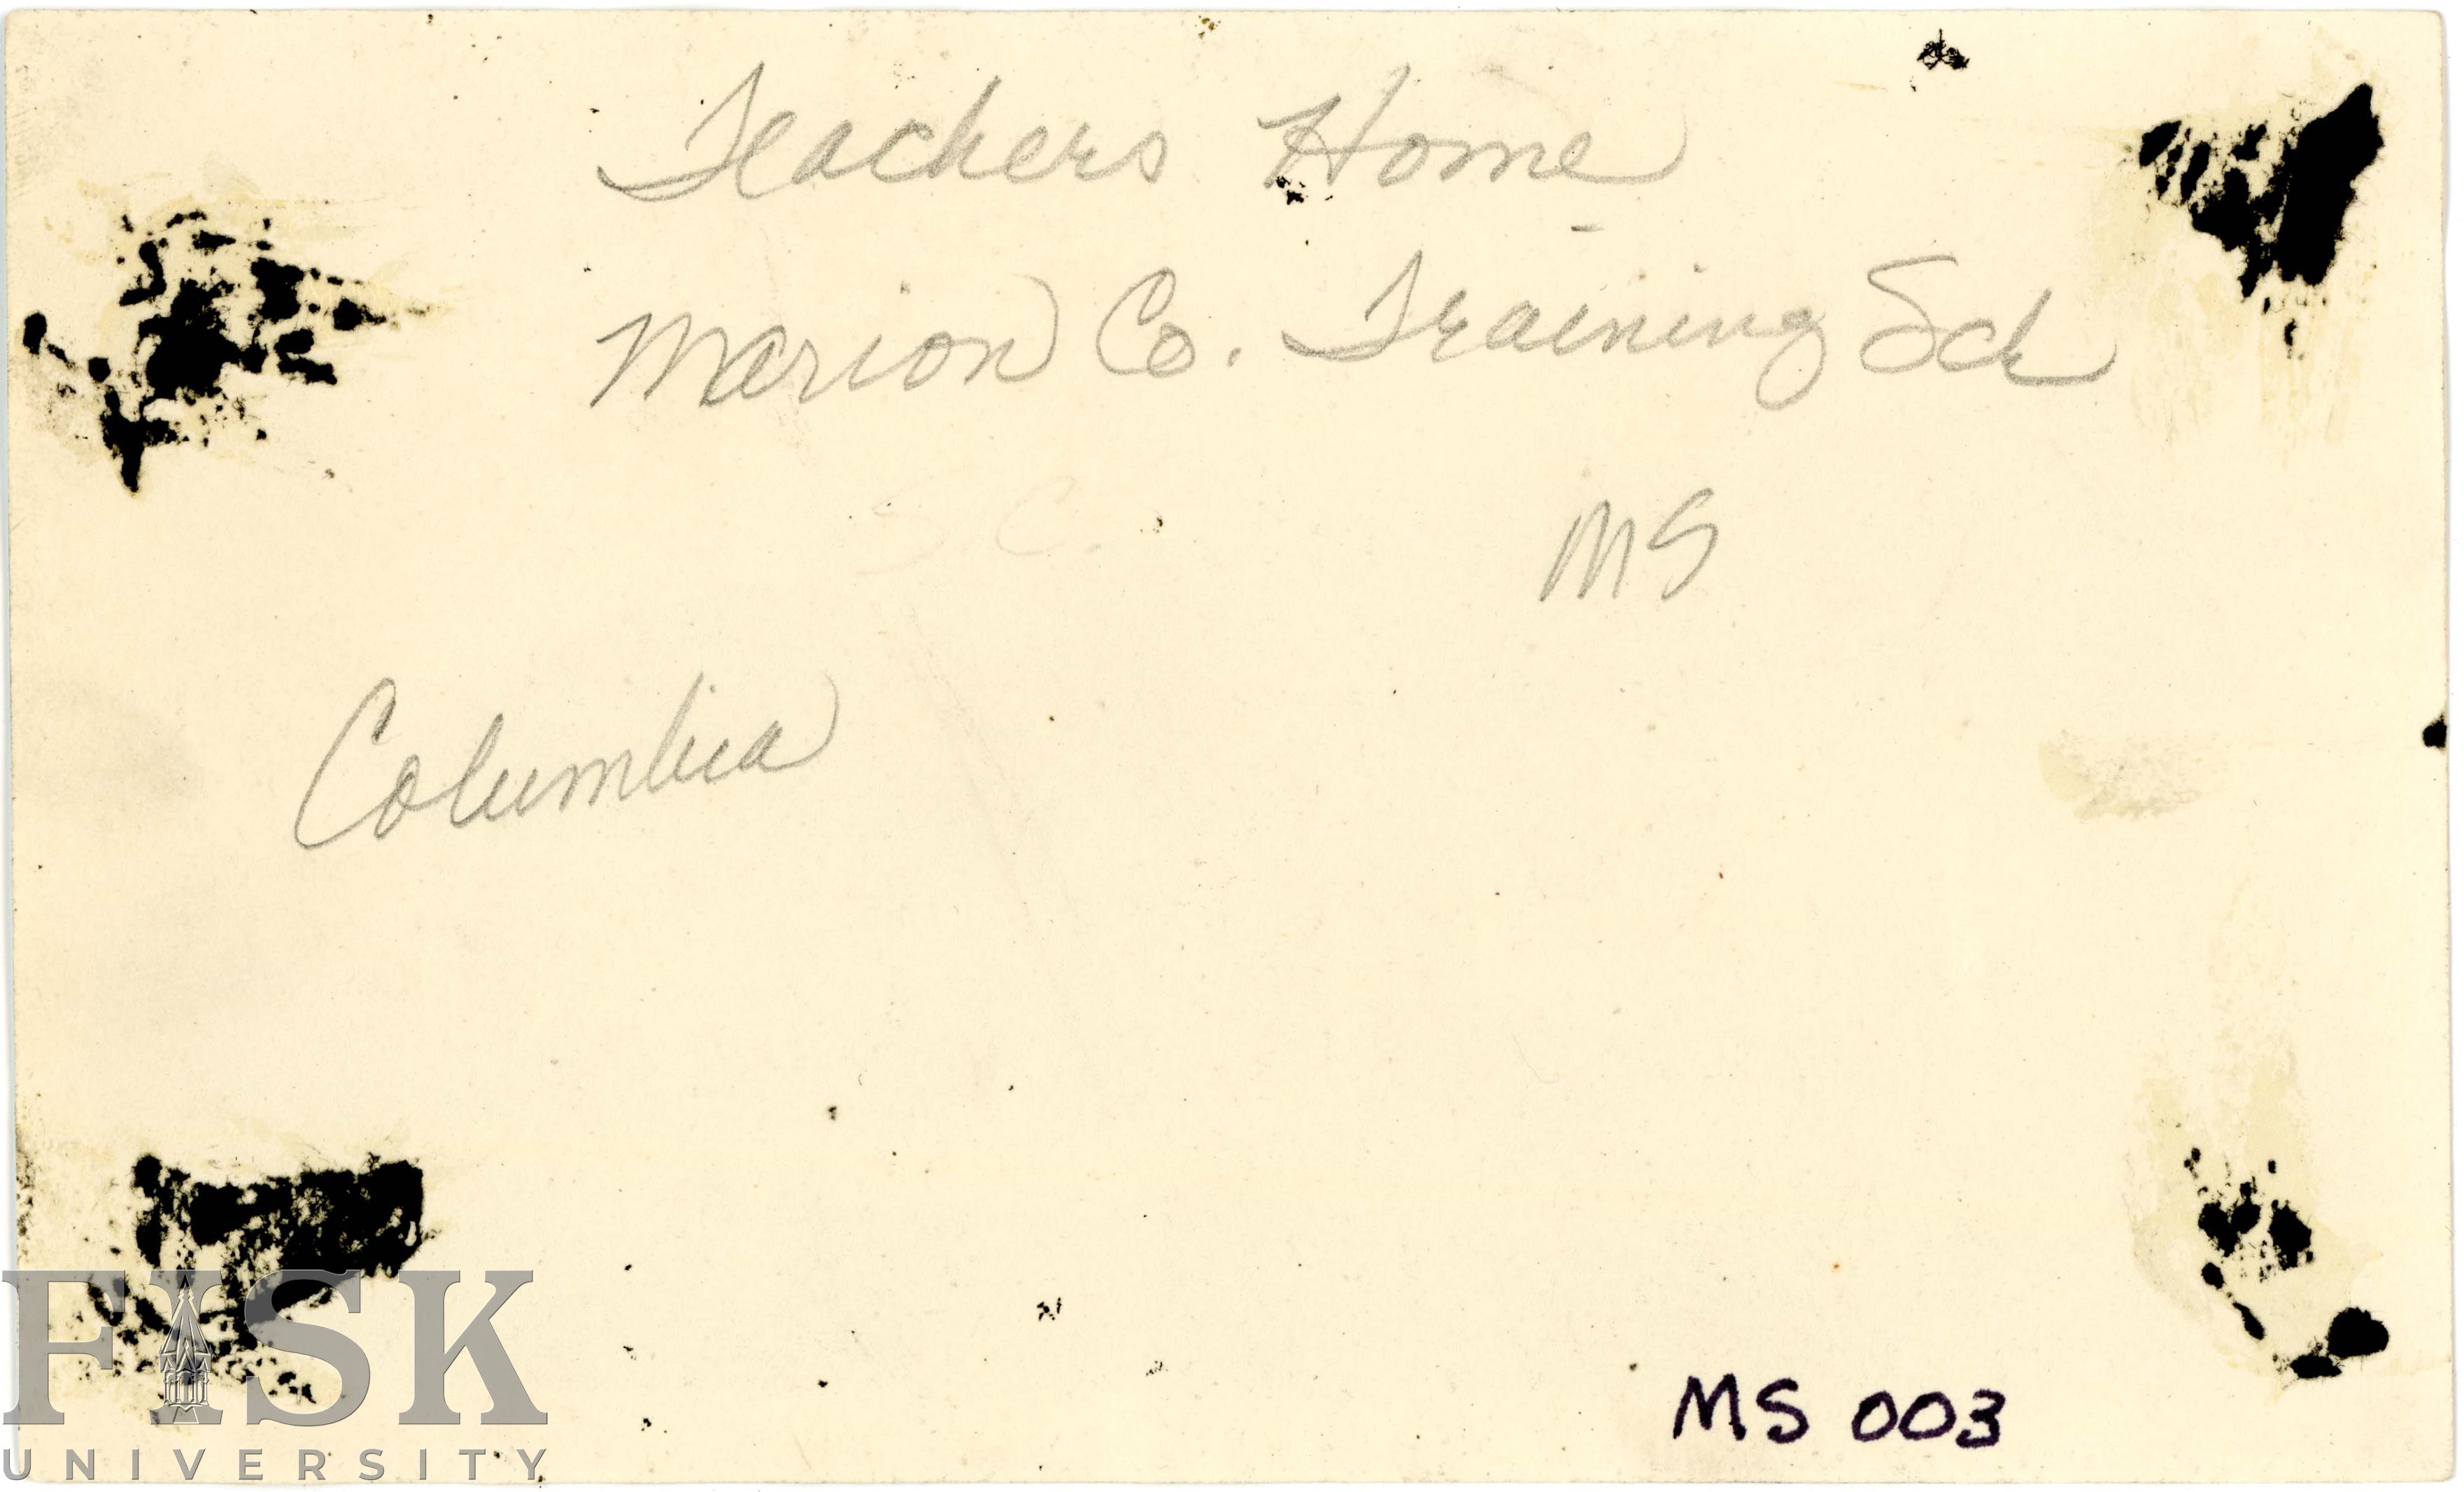 Teachers Home
Marion Co. Training Sch
S.C.
MS
Columbia
MS 003
FISK
UNIVERSITY